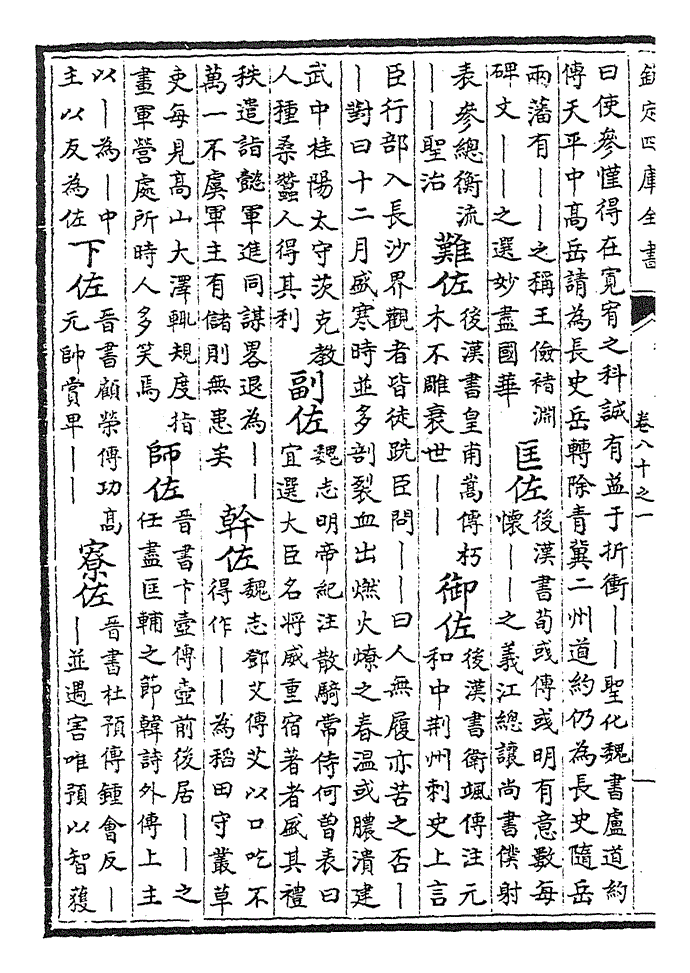 欽定四庫全書
卷八十之一
曰使參慬得在寬宥之科誠有益于折衝——聖化魏書盧道約
傳天平中髙岳請為長史岳轉除青冀二州道約仍為長史隨岳
兩藩有——之稱王儉褚淵
碑文——之選妙盡國華
匡佐
後漢書荀彧傳彧明有意數每
懷——之義江總讓尚書僕射
表參總衡流
——聖治
難佐
後漢書皇甫嵩傳朽
木不雕衰世——
御佐
後漢書衛颯傳注元
和中荆州刺史上言
臣行部入長沙界觀者皆徒跣臣問——曰人無履亦苦之否—
—對曰十二月盛寒時並多剖裂血出燃火燎之春温或膿潰建
武中桂陽太守茨克教
人種桑蠶人得其利
副佐
魏志明帝紀注散騎常侍何曾表曰
宜選大臣名將威重宿著者盛其禮
秩遣詣懿軍進同謀畧退為——
萬一不虞軍主有儲則無患矣
幹佐
魏志鄧艾傳艾以口吃不
得作——為稻田守叢草
吏每見髙山大澤輙規度指
畫軍營處所時人多笑焉
師佐
晉書卞壺傳壺前後居——之
任盡匡輔之節韓詩外傳上主
以—為—中
主以友為佐
下佐
晉書顧榮傳功髙
元帥賞卑——
寮佐
晉書杜預傳鍾會反—
—並遇害唯預以智獲